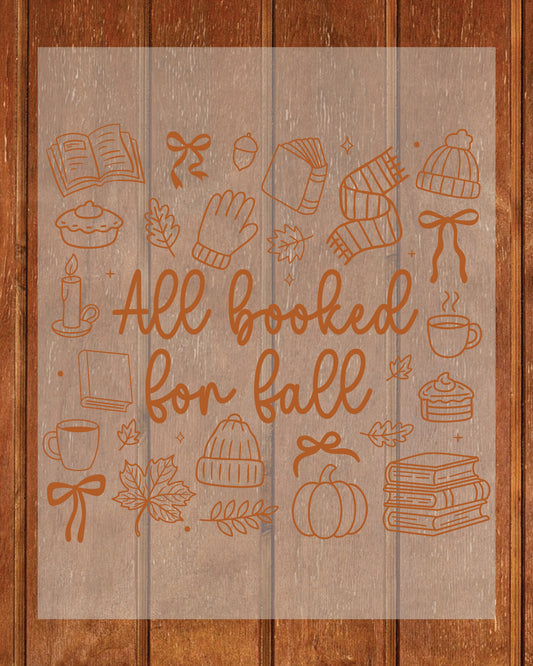 All booked
for fall